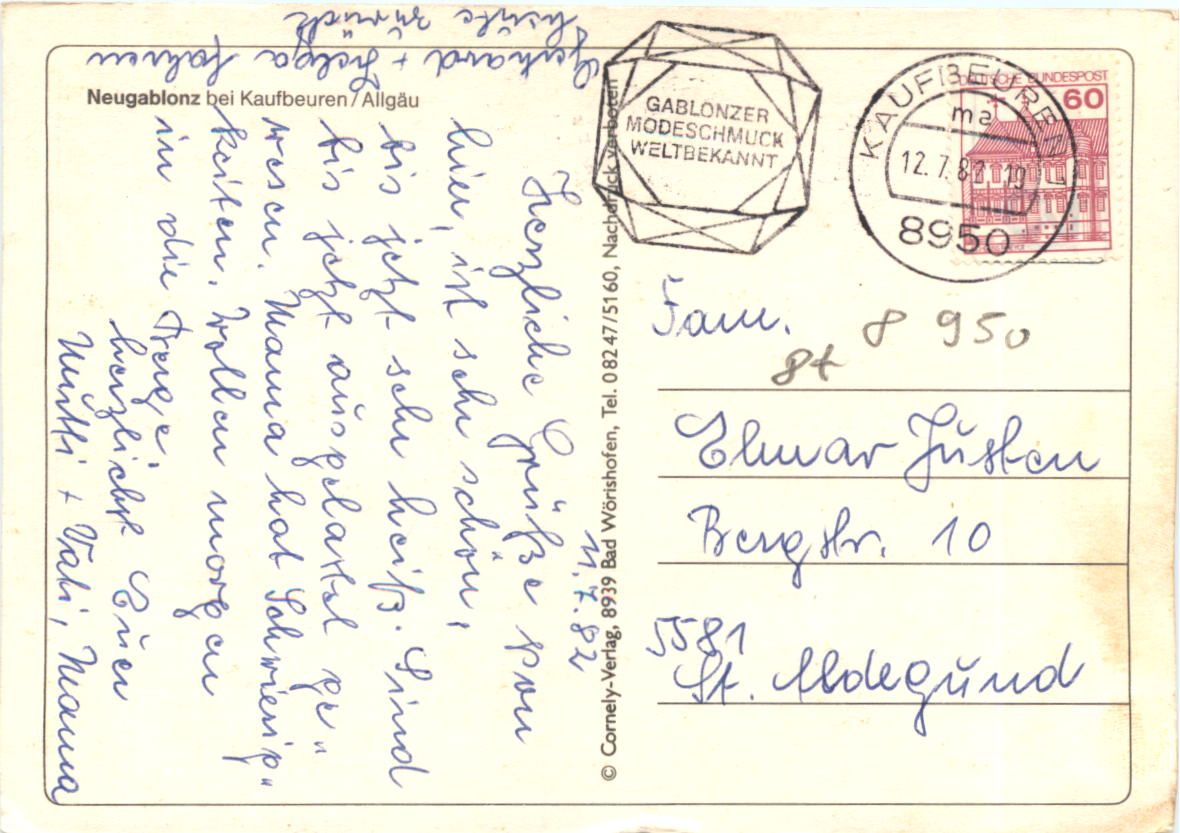 Neugablonz bei Kaufbeuren/Allgäu
11.7.82
Herzliche Grüße von
hier, ist sehr schön,
bis jetzt sehr heiß. Sind
bis jetzt ausgelastet ge"
wesen. Mama hat Schwierig"
keiten. Wollen morgen
in die Berge,
herzlichst Euer
Mutti + Vati, Mama
Gerhard + Helga fahren
heute zurück
© Cornely-Verlag, 8939 Bad Wörishofen, Tel. 08247/5160, Nachdruck verboten
GABLONZER
MODESCHMUCK
WELTBEKANNT
KAUFBEUREN 1
ma
12.7.82-19
8950
DEUTSCHE BUNDESPOST
60
Fam.
8 950
8t
Elmar Justen
Bergstr. 10
5581
St. Aldegund